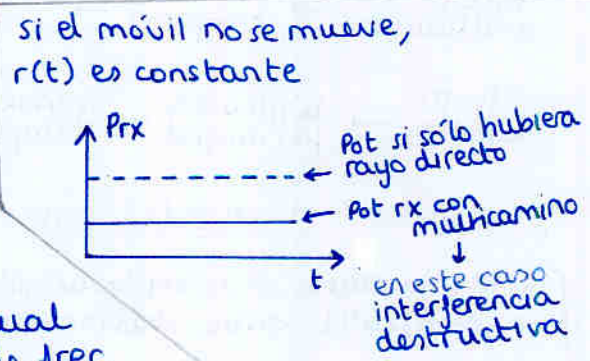 si el móvil no se mueve,
r(t) es constante
Prx
Pot si sólo hubiera
rayo directo
Pot rx con
multicamino
t
en este caso
interferencia
destructiva
ual
frec